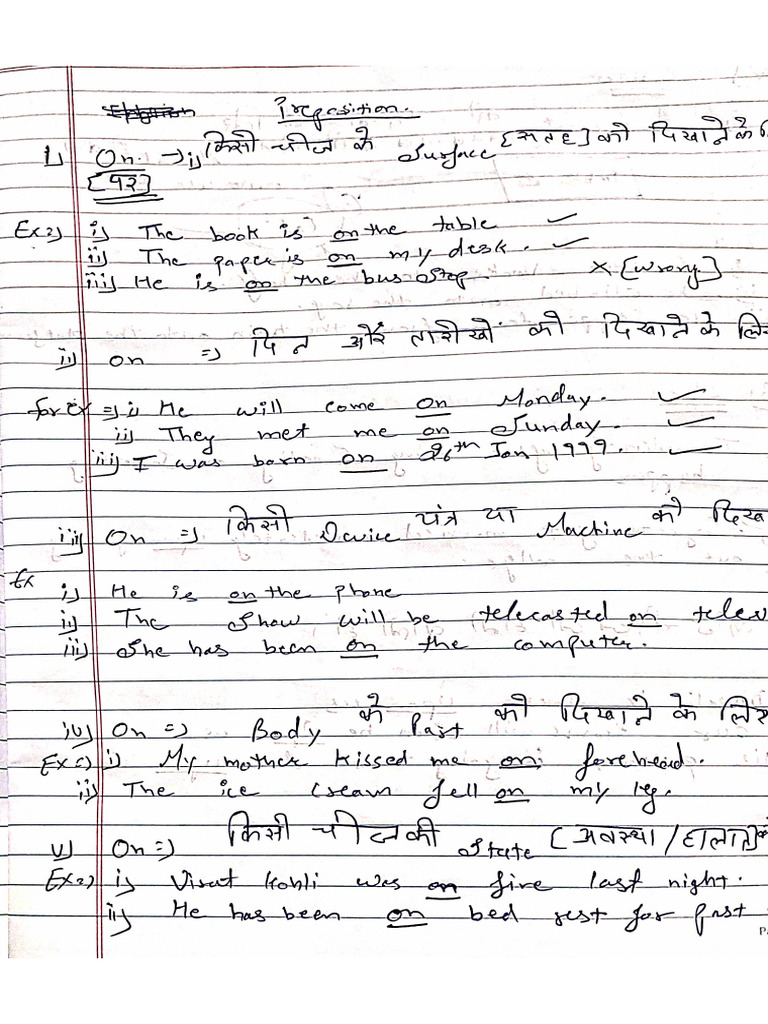 Preposition.
1) On. → i) किसी चीज के Surface [सतह] को दिखाने के
[पर]
Ex⇒ i) The book is on the table ✓
ii) The paper is on my desk. ✓
iii) He is on the bus stop. × [wrong]
ii) on ⇒ दिन और तारीखों को दिखाने के लिए
for Ex ⇒ i) He will come on Monday. ✓
ii) They met me on Sunday. ✓
iii) I was born on 26th Jan 1999. ✓
iii) On ⇒ किसी Device यंत्र या Machine को दिख
Ex i) He is on the phone
ii) The Show will be telecasted on telev
iii) She has been on the computer.
iv) On ⇒ Body के Part को दिखाने के लिए
Ex⇒ i) My mother kissed me on forehead.
ii) The ice cream fell on my leg.
v) On ⇒ किसी चीज की State [अवस्था/हालात]
Ex⇒ i) Virat Kohli was on fire last night.
ii) He has been on bed rest for past